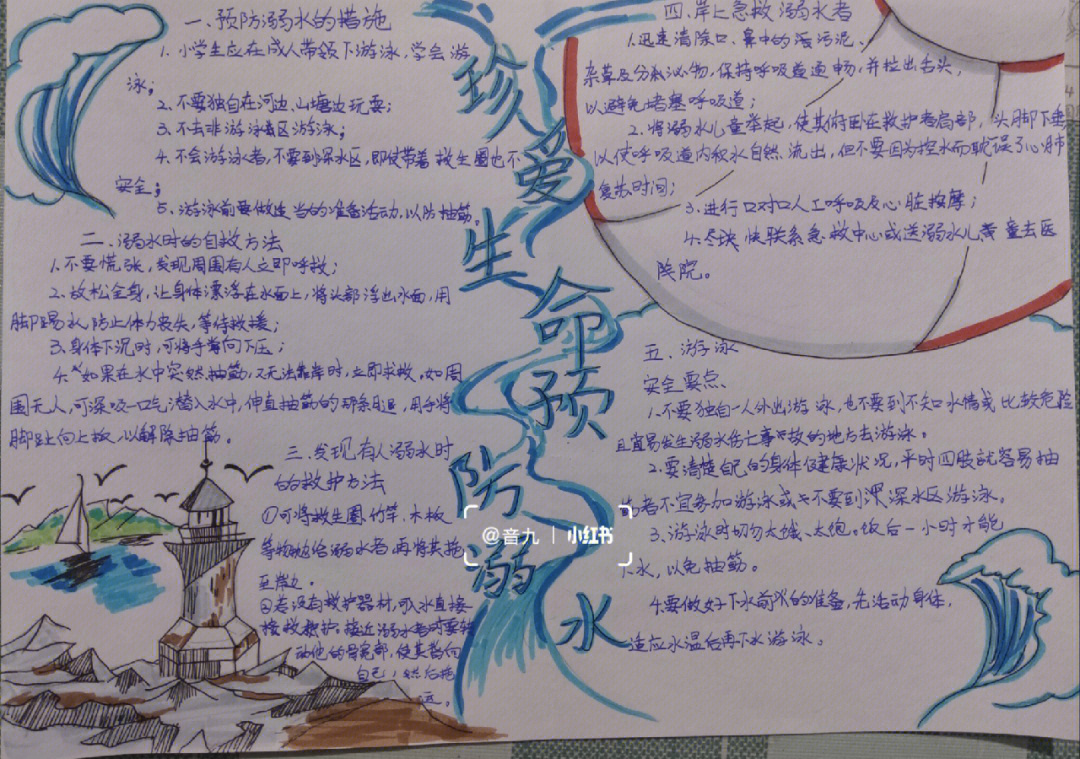 一、预防溺水的措施
1、小学生应在成人带领下游泳,学会游
泳;
2、不要独自在河边、山塘边玩耍;
3、不去非游泳区游泳;
4、不会游泳者,不要到深水区,即使带着救生圈也不
安全;
5、游泳前要做适当的准备活动,以防抽筋。
二、溺水时的自救方法
1、不要慌张,发现周围有人立即呼救;
2、放松全身,让身体漂浮在水面上,将头部浮出水面,用
脚踢水,防止体力丧失,等待救援;
3、身体下沉时,可将手掌向下压;
4、如果在水中突然抽筋,又无法靠岸时,立即求救。如周
围无人,可深吸一口气潜入水中,伸直抽筋的那条腿,用手将
脚趾向上扳,以解除抽筋。
三、发现有人溺水时
的救护方法
①可将救生圈、竹竿、木板
等物抛给溺水者,再将其拖
至岸边。
②若没有救护器材,可入水直接
接救护。接近溺水者时要转
动他的髋部,使其背向
自己,然后拖
运。
珍爱生命预防溺水
四、岸上急救溺水者
1、迅速清除口、鼻中的污泥、
杂草及分泌物,保持呼吸道通畅,并拉出舌头,
以避免堵塞呼吸道;
2、将溺水儿童举起,使其俯卧在救护者肩部,头脚下垂
以使呼吸道内积水自然流出,但不要因为控水而耽误了心肺
复苏时间;
3、进行口对口人工呼吸及心脏按摩;
4、尽快联系急救中心或送溺水儿童去医
院。
五、游泳
安全要点
1、不要独自一人外出游泳,也不要到不知水情或比较危险
且宜易发生溺水伤亡事故的地方去游泳。
2、要清楚自己的身体健康状况,平时四肢就容易抽
筋者不宜参加游泳或不要到深水区游泳。
3、游泳时切勿太饿、太饱。饭后一小时才能
下水,以免抽筋。
4、要做好下水前的准备,先活动身体,
适应水温后再下水游泳。
@音九 | 小红书